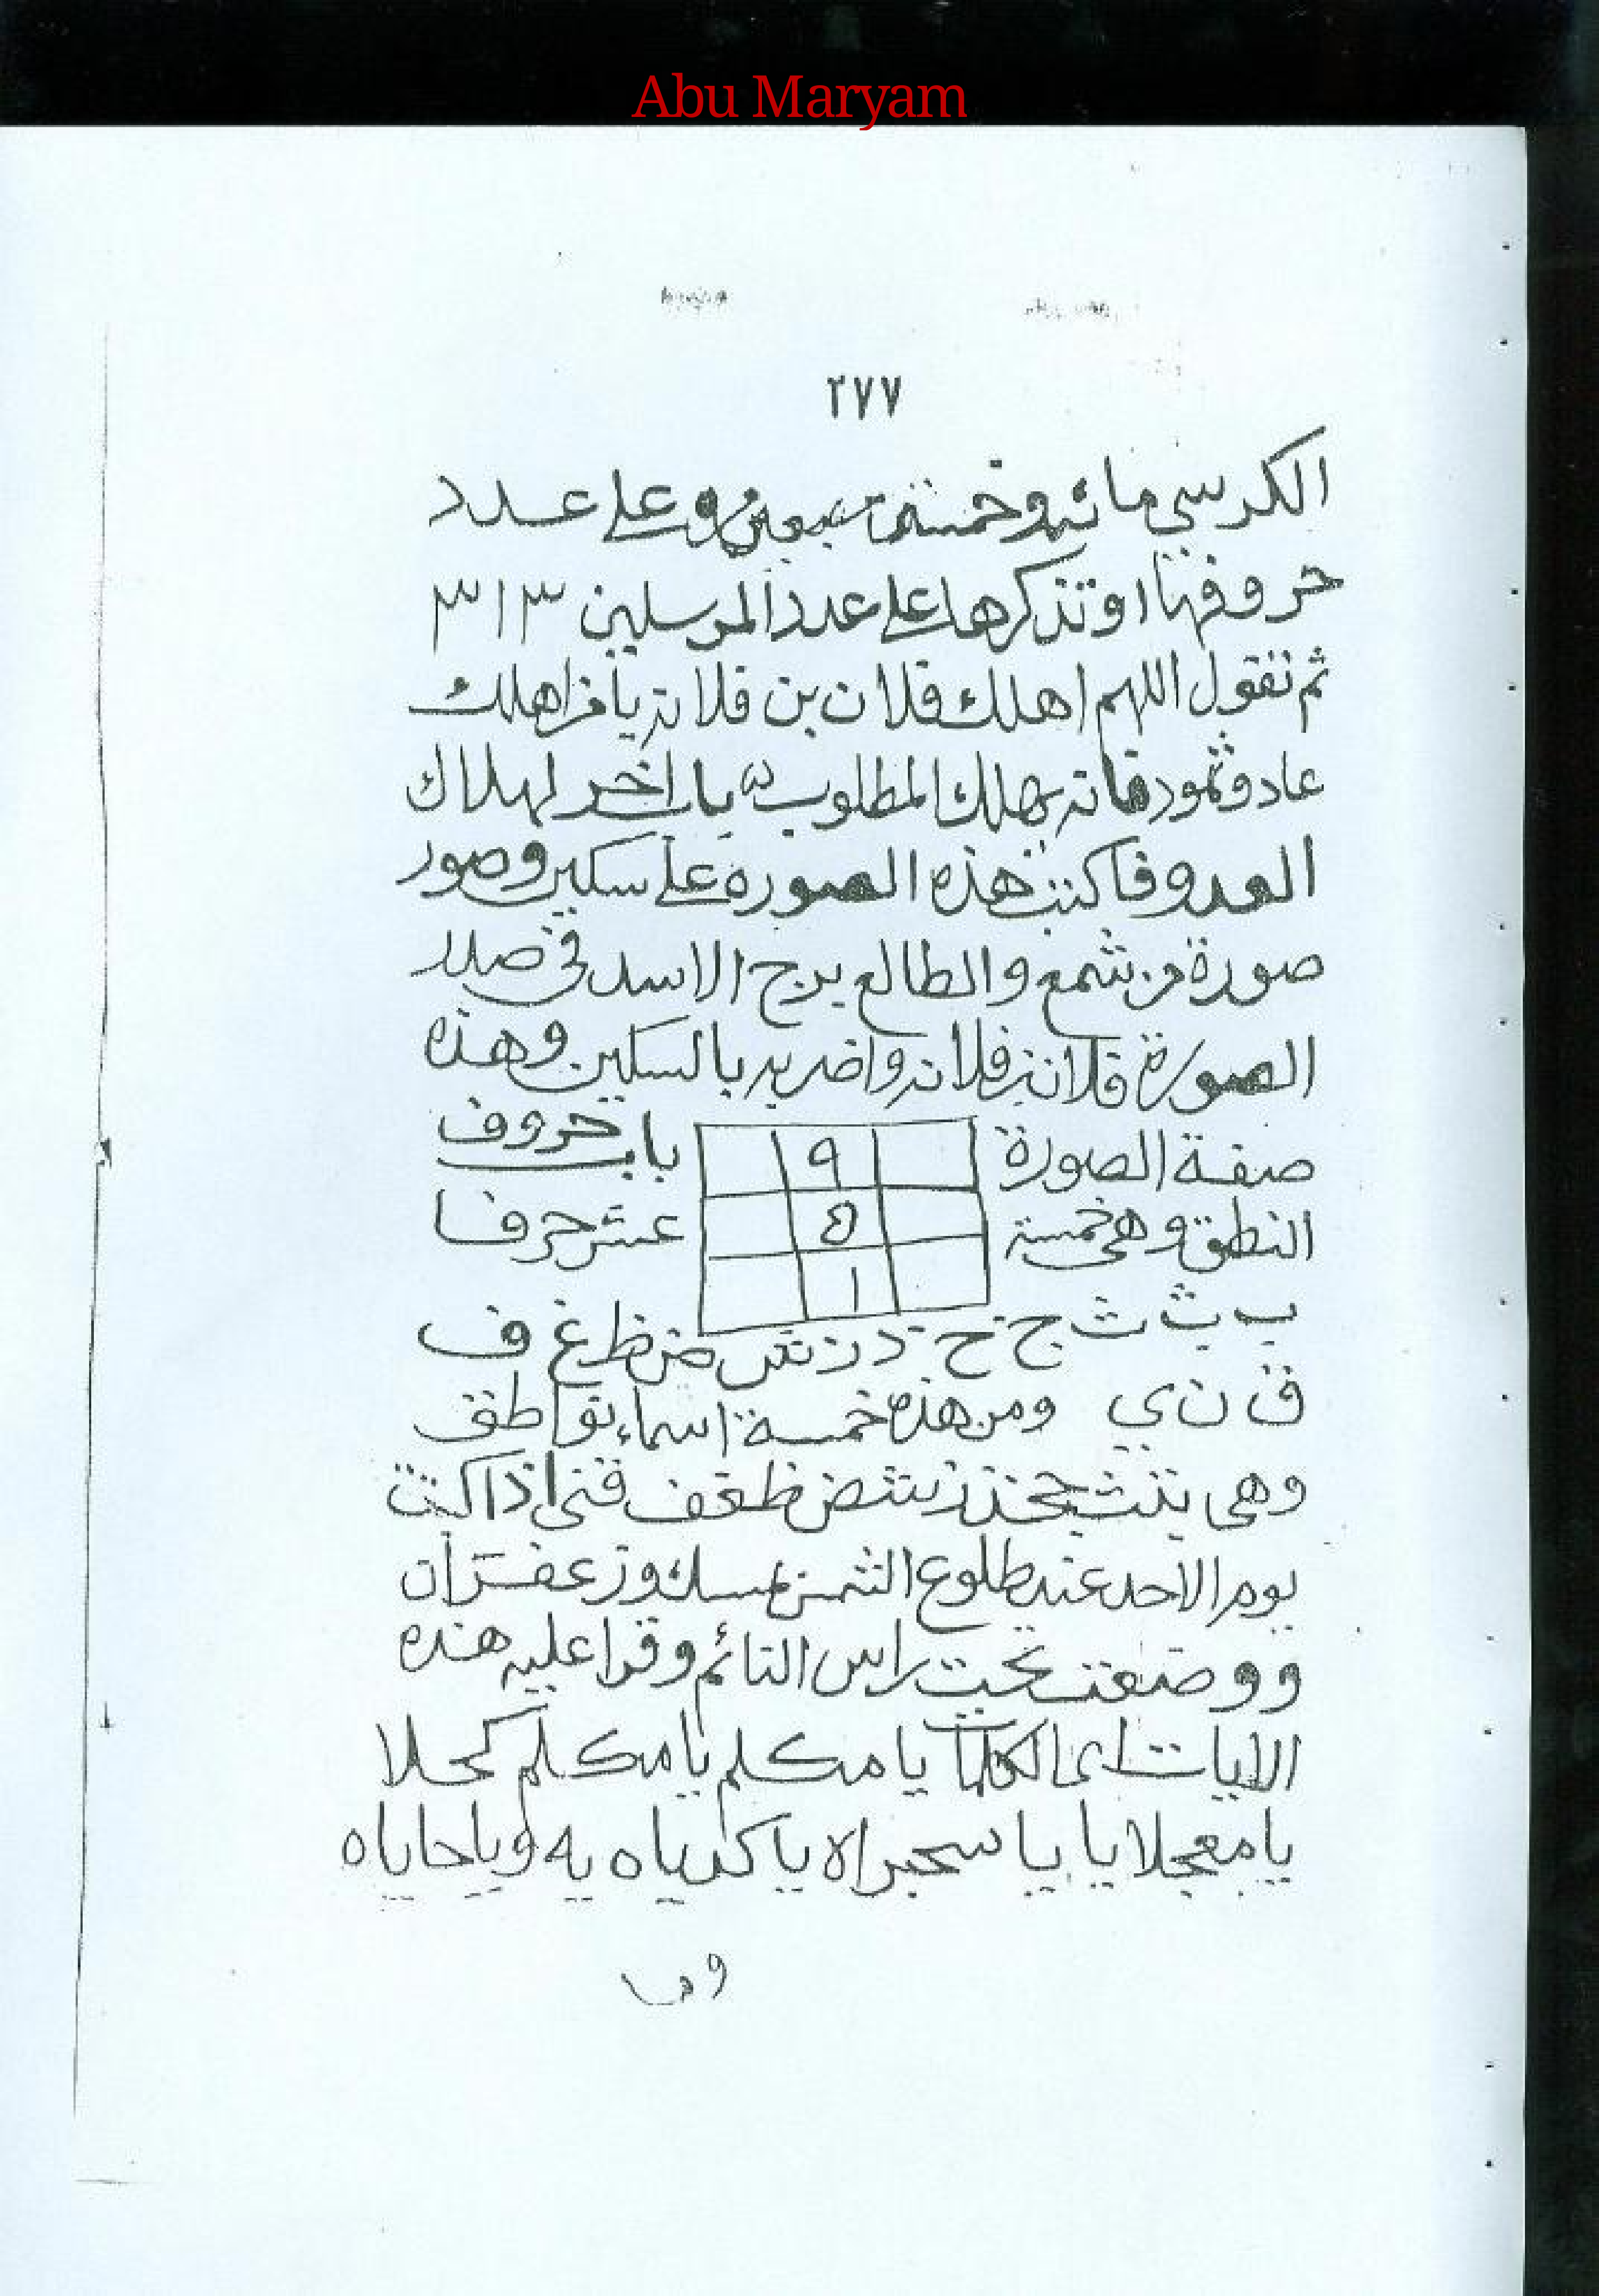 Abu Maryam
٢٧٧
الكرسي مائه وخمسة سبعين وعلى عدد
حروفها او تذكرها على عدد المرسلين ٣١٣
ثم تقول اللهم اهلك فلان بن فلانة يا من اهلك
عاد وثمود فانه يهلك المطلوب باب اخر لهلاك
العدو فاكتب هذه الصوره على سكين وصور
صورة من شمع والطالع برج الاسد في صدر
الصورة فلان بن فلانه واضربه بالسكين وهذه
صفة الصورة
٩
٥
١
باب حروف
النطق وهي خمسة عشر حرفا
ب ت ث ج خ ذ ز ش ض ظ غ ف
ق ن ي ومن هذه خمسة اسماء نواطق
وهي بتث جخذ زشض ظغف قني اذا كتبت
يوم الاحد عند طلوع الشمس بمسك وزعفران
ووضعت تحت راس النائم وقرا عليه هذه
الايات اى الكلمات يا مكلم يا مكلم كحلا
يا معجلا يا يا يا كدياه يه ويا حاياه